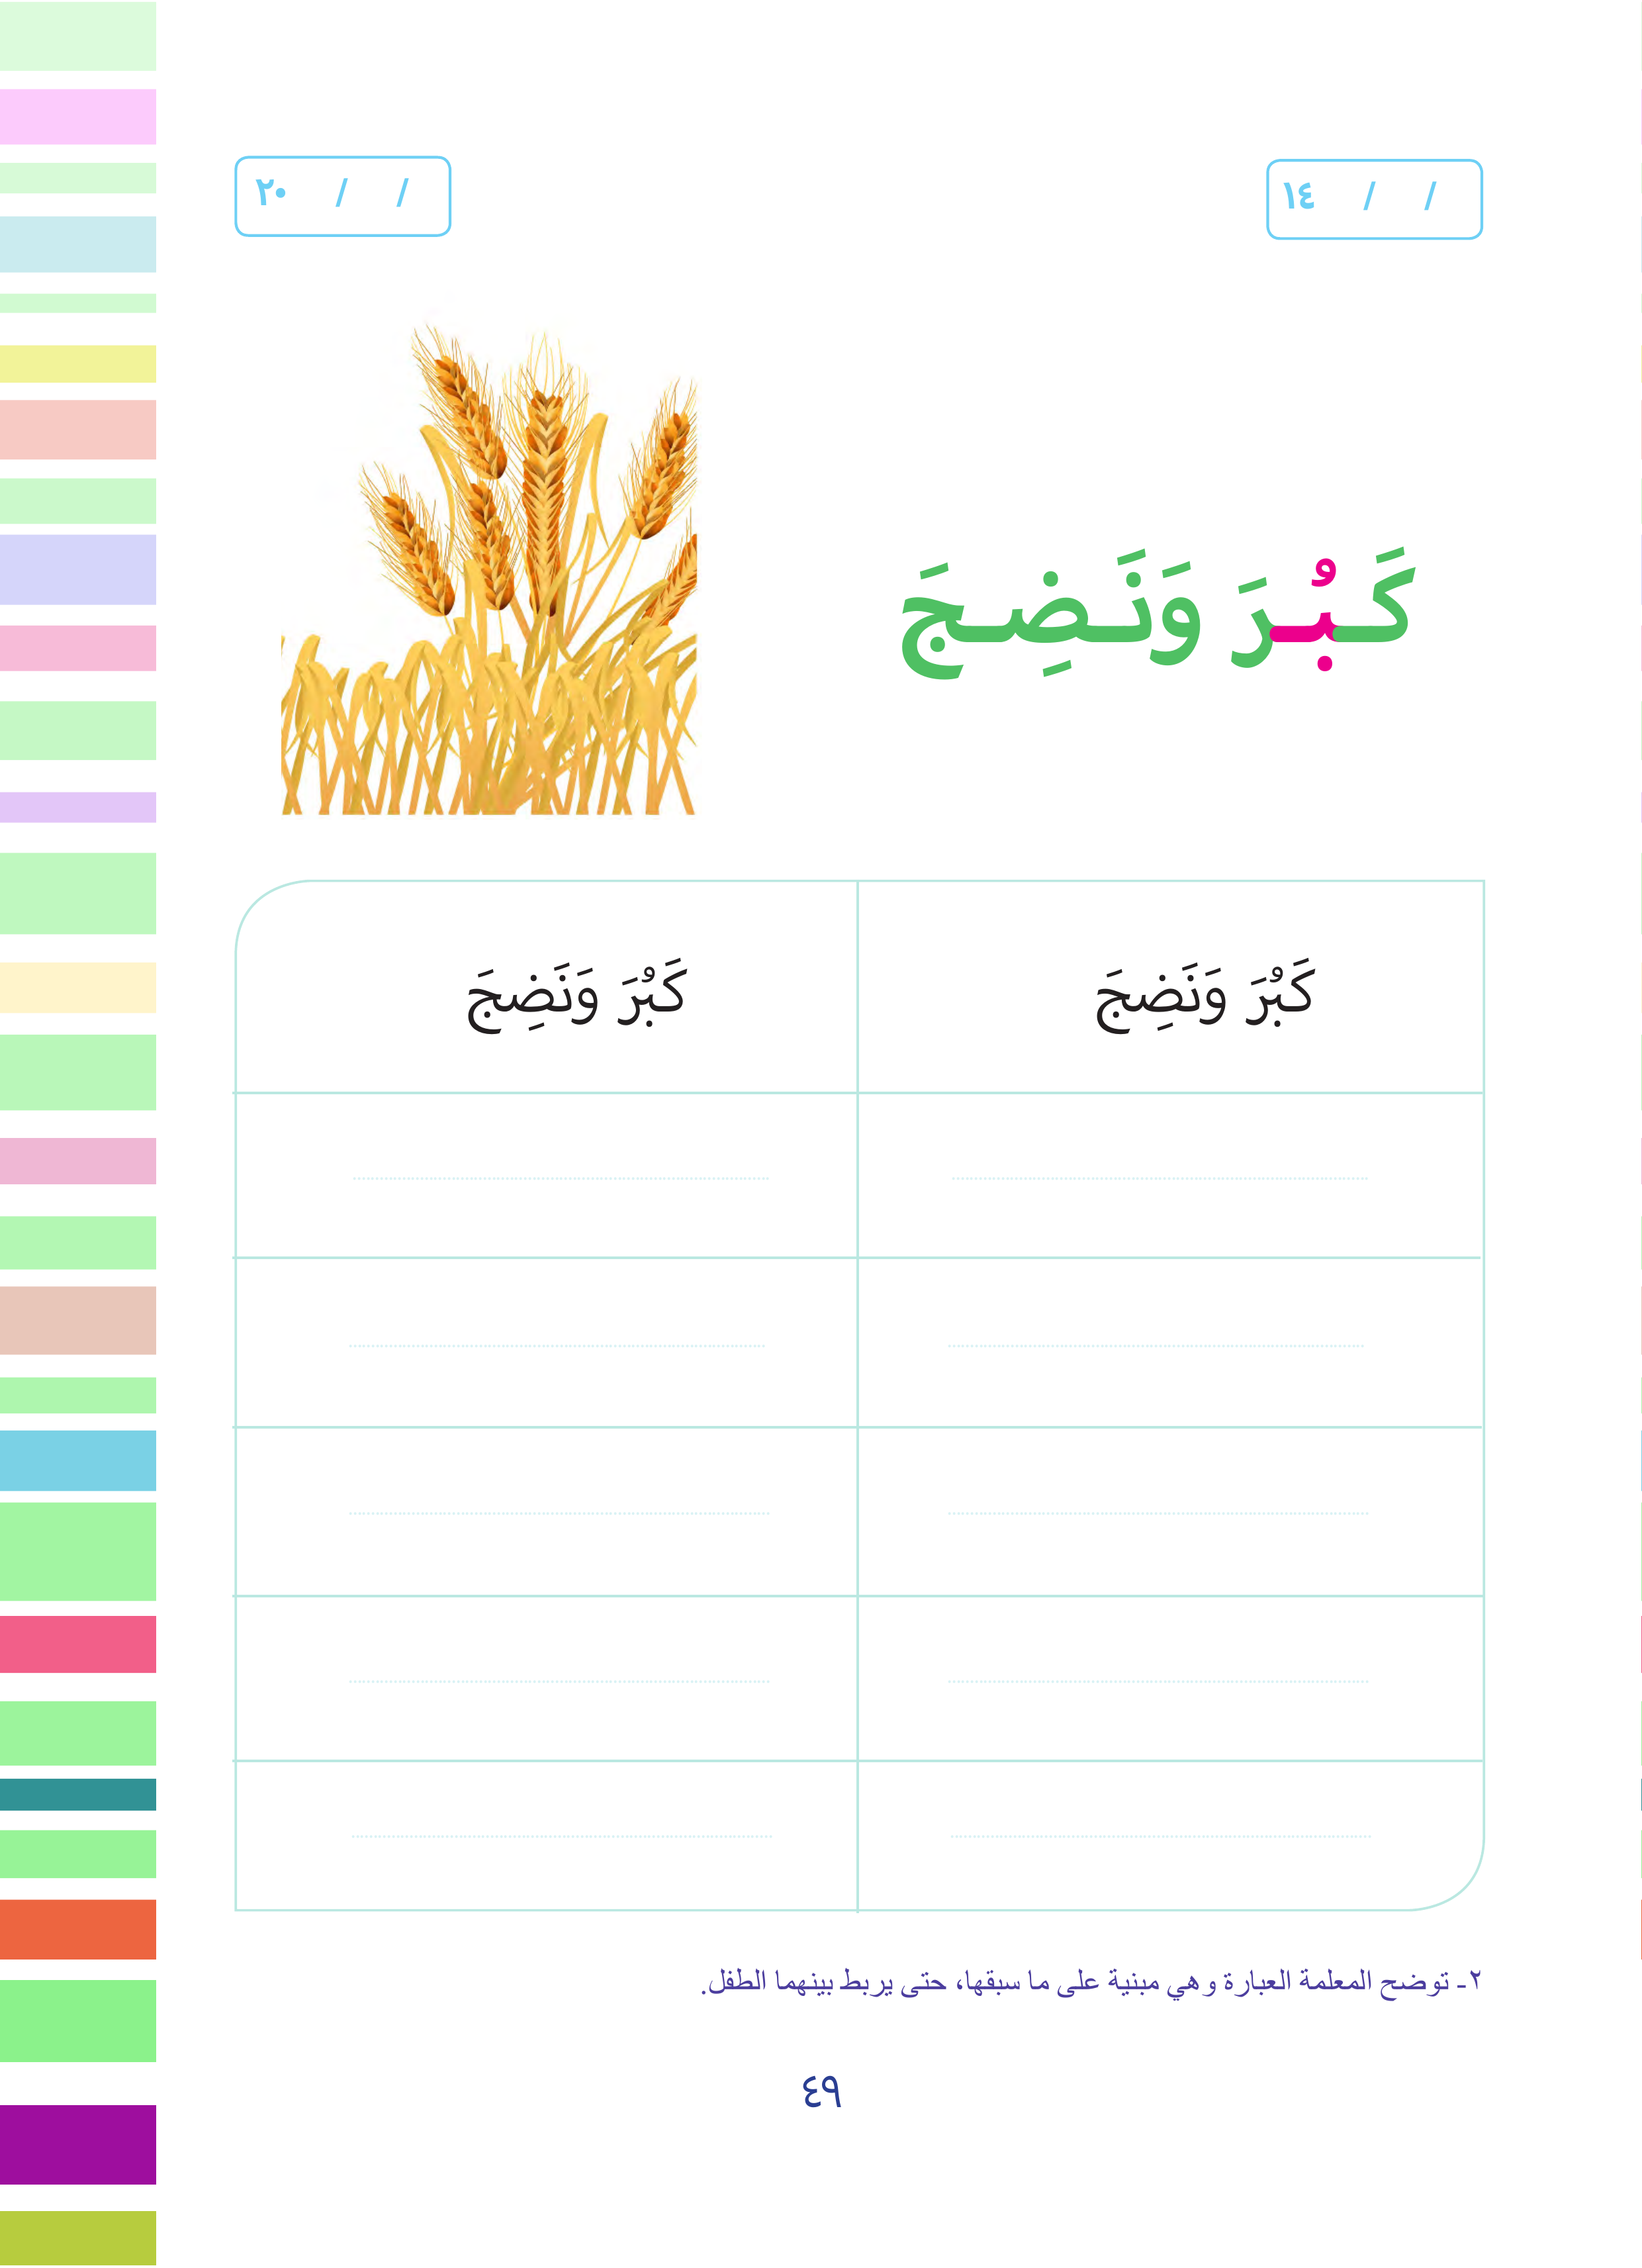 ١٤ / /
٢٠ / /
كَـبُـرَ وَنَـضِـجَ
كَبُرَ وَنَضِجَ
كَبُرَ وَنَضِجَ
٢- توضح المعلمة العبارة وهي مبنية على ما سبقها، حتى يربط بينهما الطفل.
٤٩